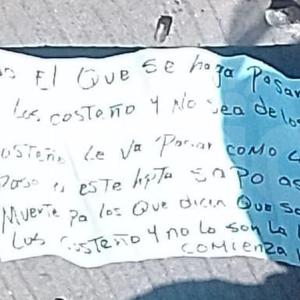 os El Que se haga Pasar
Los costeño y No sea de los
costeño le va Pasar como
Paso a este hpta sapo as
Muerte pa los Que dicen Que so
Los costeño y no lo son la
comienza